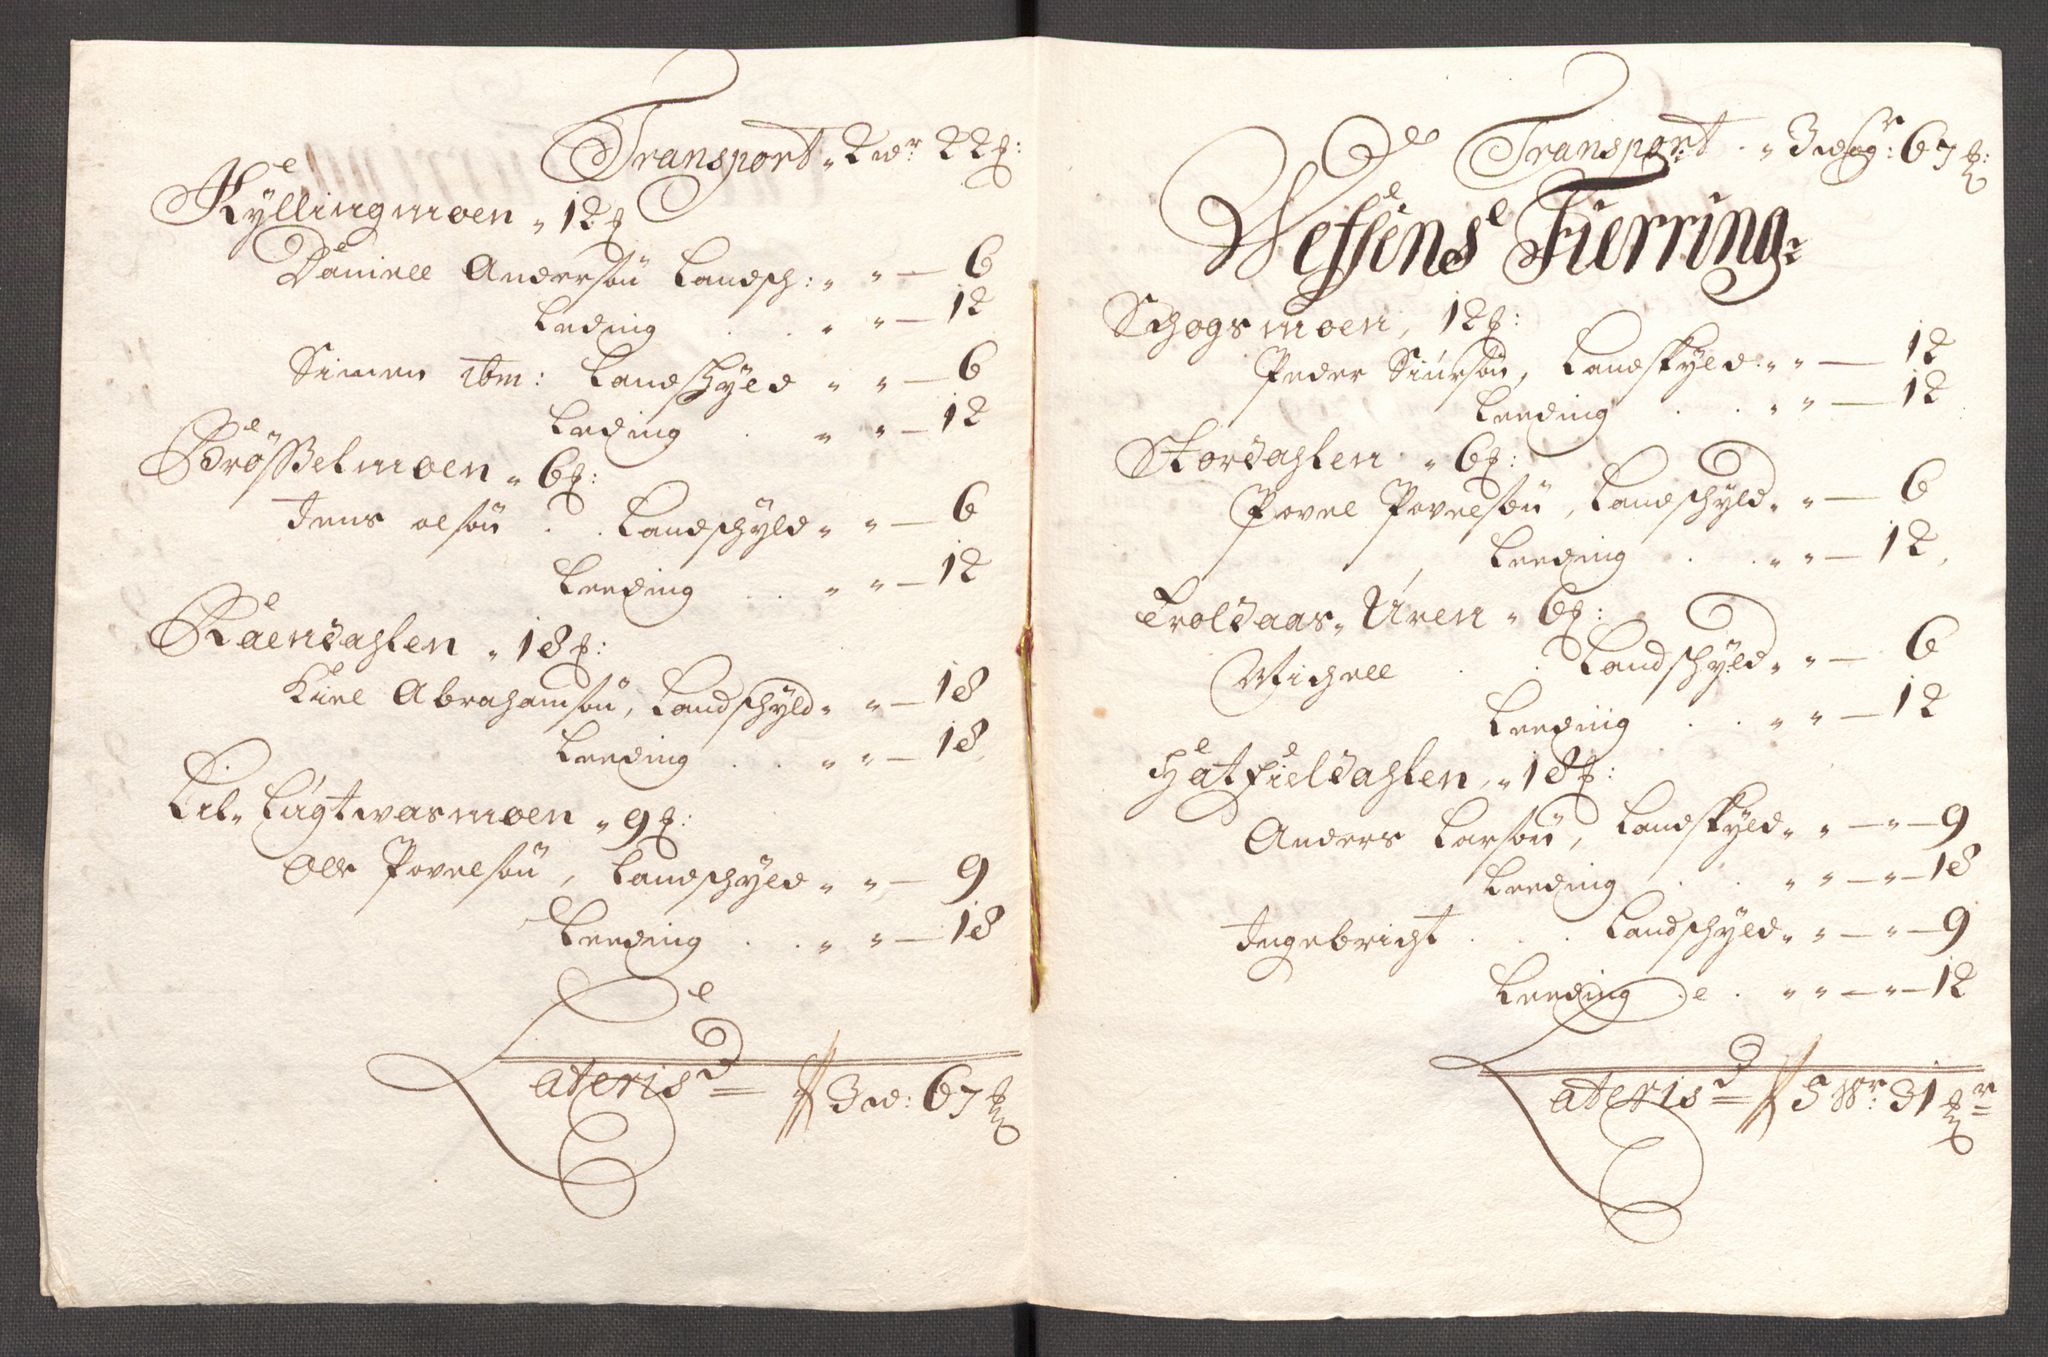 Transport „ 2 wr 22 ß:
Kyllingmoen „ 12 ß
Daniell Andersøn Landsch: „ „ — 6
Leding . . „ „ — 12
Simen ibm: Landschyld „ „ — 6
Leding . „ „ — 12
Brøsselmoen „ 6 ß:
Jens olsøn . . Landschyld „ „ — 6
Leeding . . „ „ — 12
Raendahlen „ 18 ß:
Kiel Abrahamsøn, Landschyld „ „ — 18
Leeding . . „ „ — 18
Lil„ Lugtwasmoen „ 9 ß:
Ole Povelsøn, Landschyld „ „ — 9
Leeding . . „ „ — 18
Lateris = 3 w: 67 ß
Transport . „ 3 : 67 ß:
Wefsens Fierring:
Schogsmoen, 12 ß:
Peder Siursøn, Landskyld: „ „ — 12
Leeding . . „ „ — 12
Stordahlen „ 6 ß:
Povel Povelsøn, Landschyld „ „ — 6
Leeding . . „ „ — 12
Troldaas„ Uren „ 6 ß:
Michell . . Landschyld „ „ — 6
Leeding . . „ „ — 12
Hatfieldahlen, „ 18 ß:
Anders Larsøn, Landskyld „ „ — „ — 9
Leeding . . „ „ — „ — 18
Ingebricht . . Landschyld „ „ — „ — 9
Leeding . . „ „ — „ — 12
Lateris = 5 Wr: 31 ß